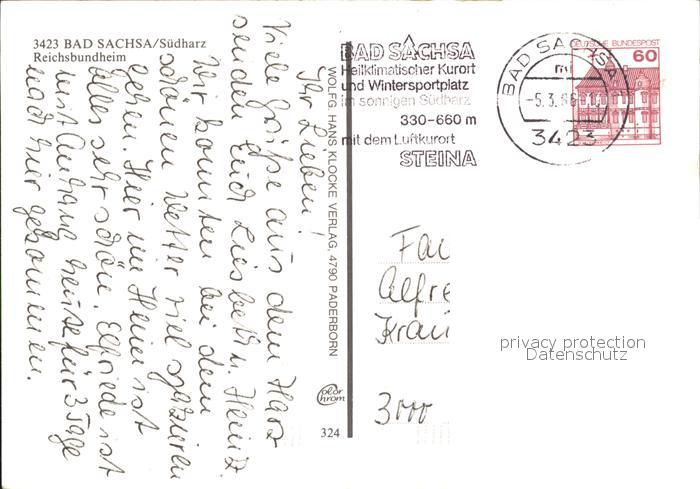 3423 BAD SACHSA/Südharz
Reichsbundheim
Ihr Lieben!
Viele Grüße aus dem Harz
senden Euch Liesbeth u. Heinz.
Wir konnten bei dem
schönen Wetter viel spazieren
gehen. Hier im Heim ist
alles sehr schön. Elfriede ist
mit Anhang heute für 3 Tage
nach hier gekommen.
WOLFG. HANS KLOCKE VERLAG, 4790 PADERBORN
color
chrom
324
BAD SACHSA
Heilklimatischer Kurort
und Wintersportplatz
im sonnigen Südharz
330-660 m
mit dem Luftkurort
STEINA
BAD SACHSA
-5.3.86
3423
DEUTSCHE BUNDESPOST
60
Fam
Alfre
Krau
3000
privacy protection
Datenschutz